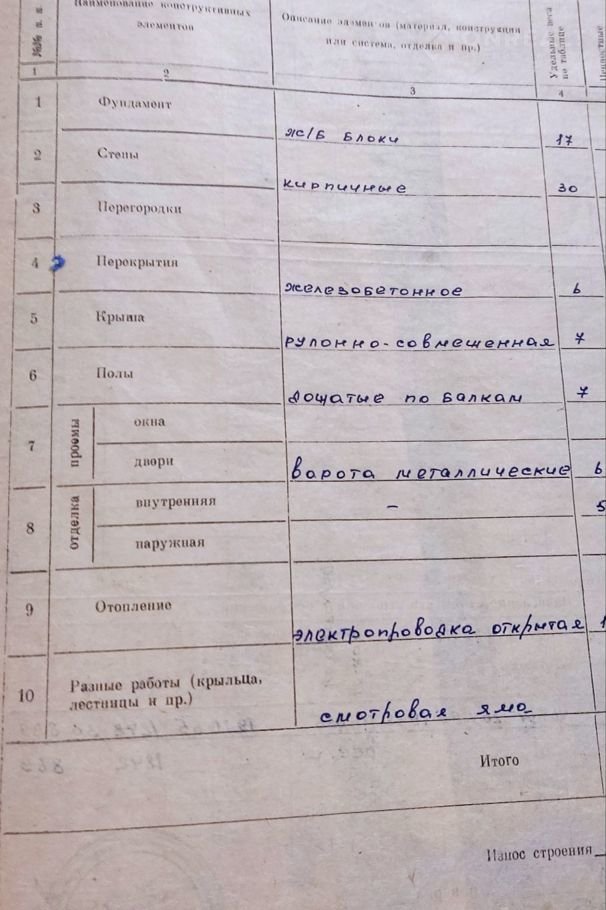 №№ п. п.
Наименование конструктивных
элементов
Описание элементов (материал, конструкция
или система, отделка и пр.)
Удельные веса
по таблице
1 2 3 4
1 Фундамент ж/б блоки 17
2 Стены кирпичные 30
3 Перегородки
4 Перекрытия железобетонное 6
5 Крыша рулонно-совмещенная 7
6 Полы дощатые по балкам 7
7 проемы
окна
двери ворота металлические 6
8 отделка
внутренняя – 5
наружная
9 Отопление электропроводка открытая 1
10 Разные работы (крыльца,
лестницы и пр.) смотровая яма
Итого
Износ строения